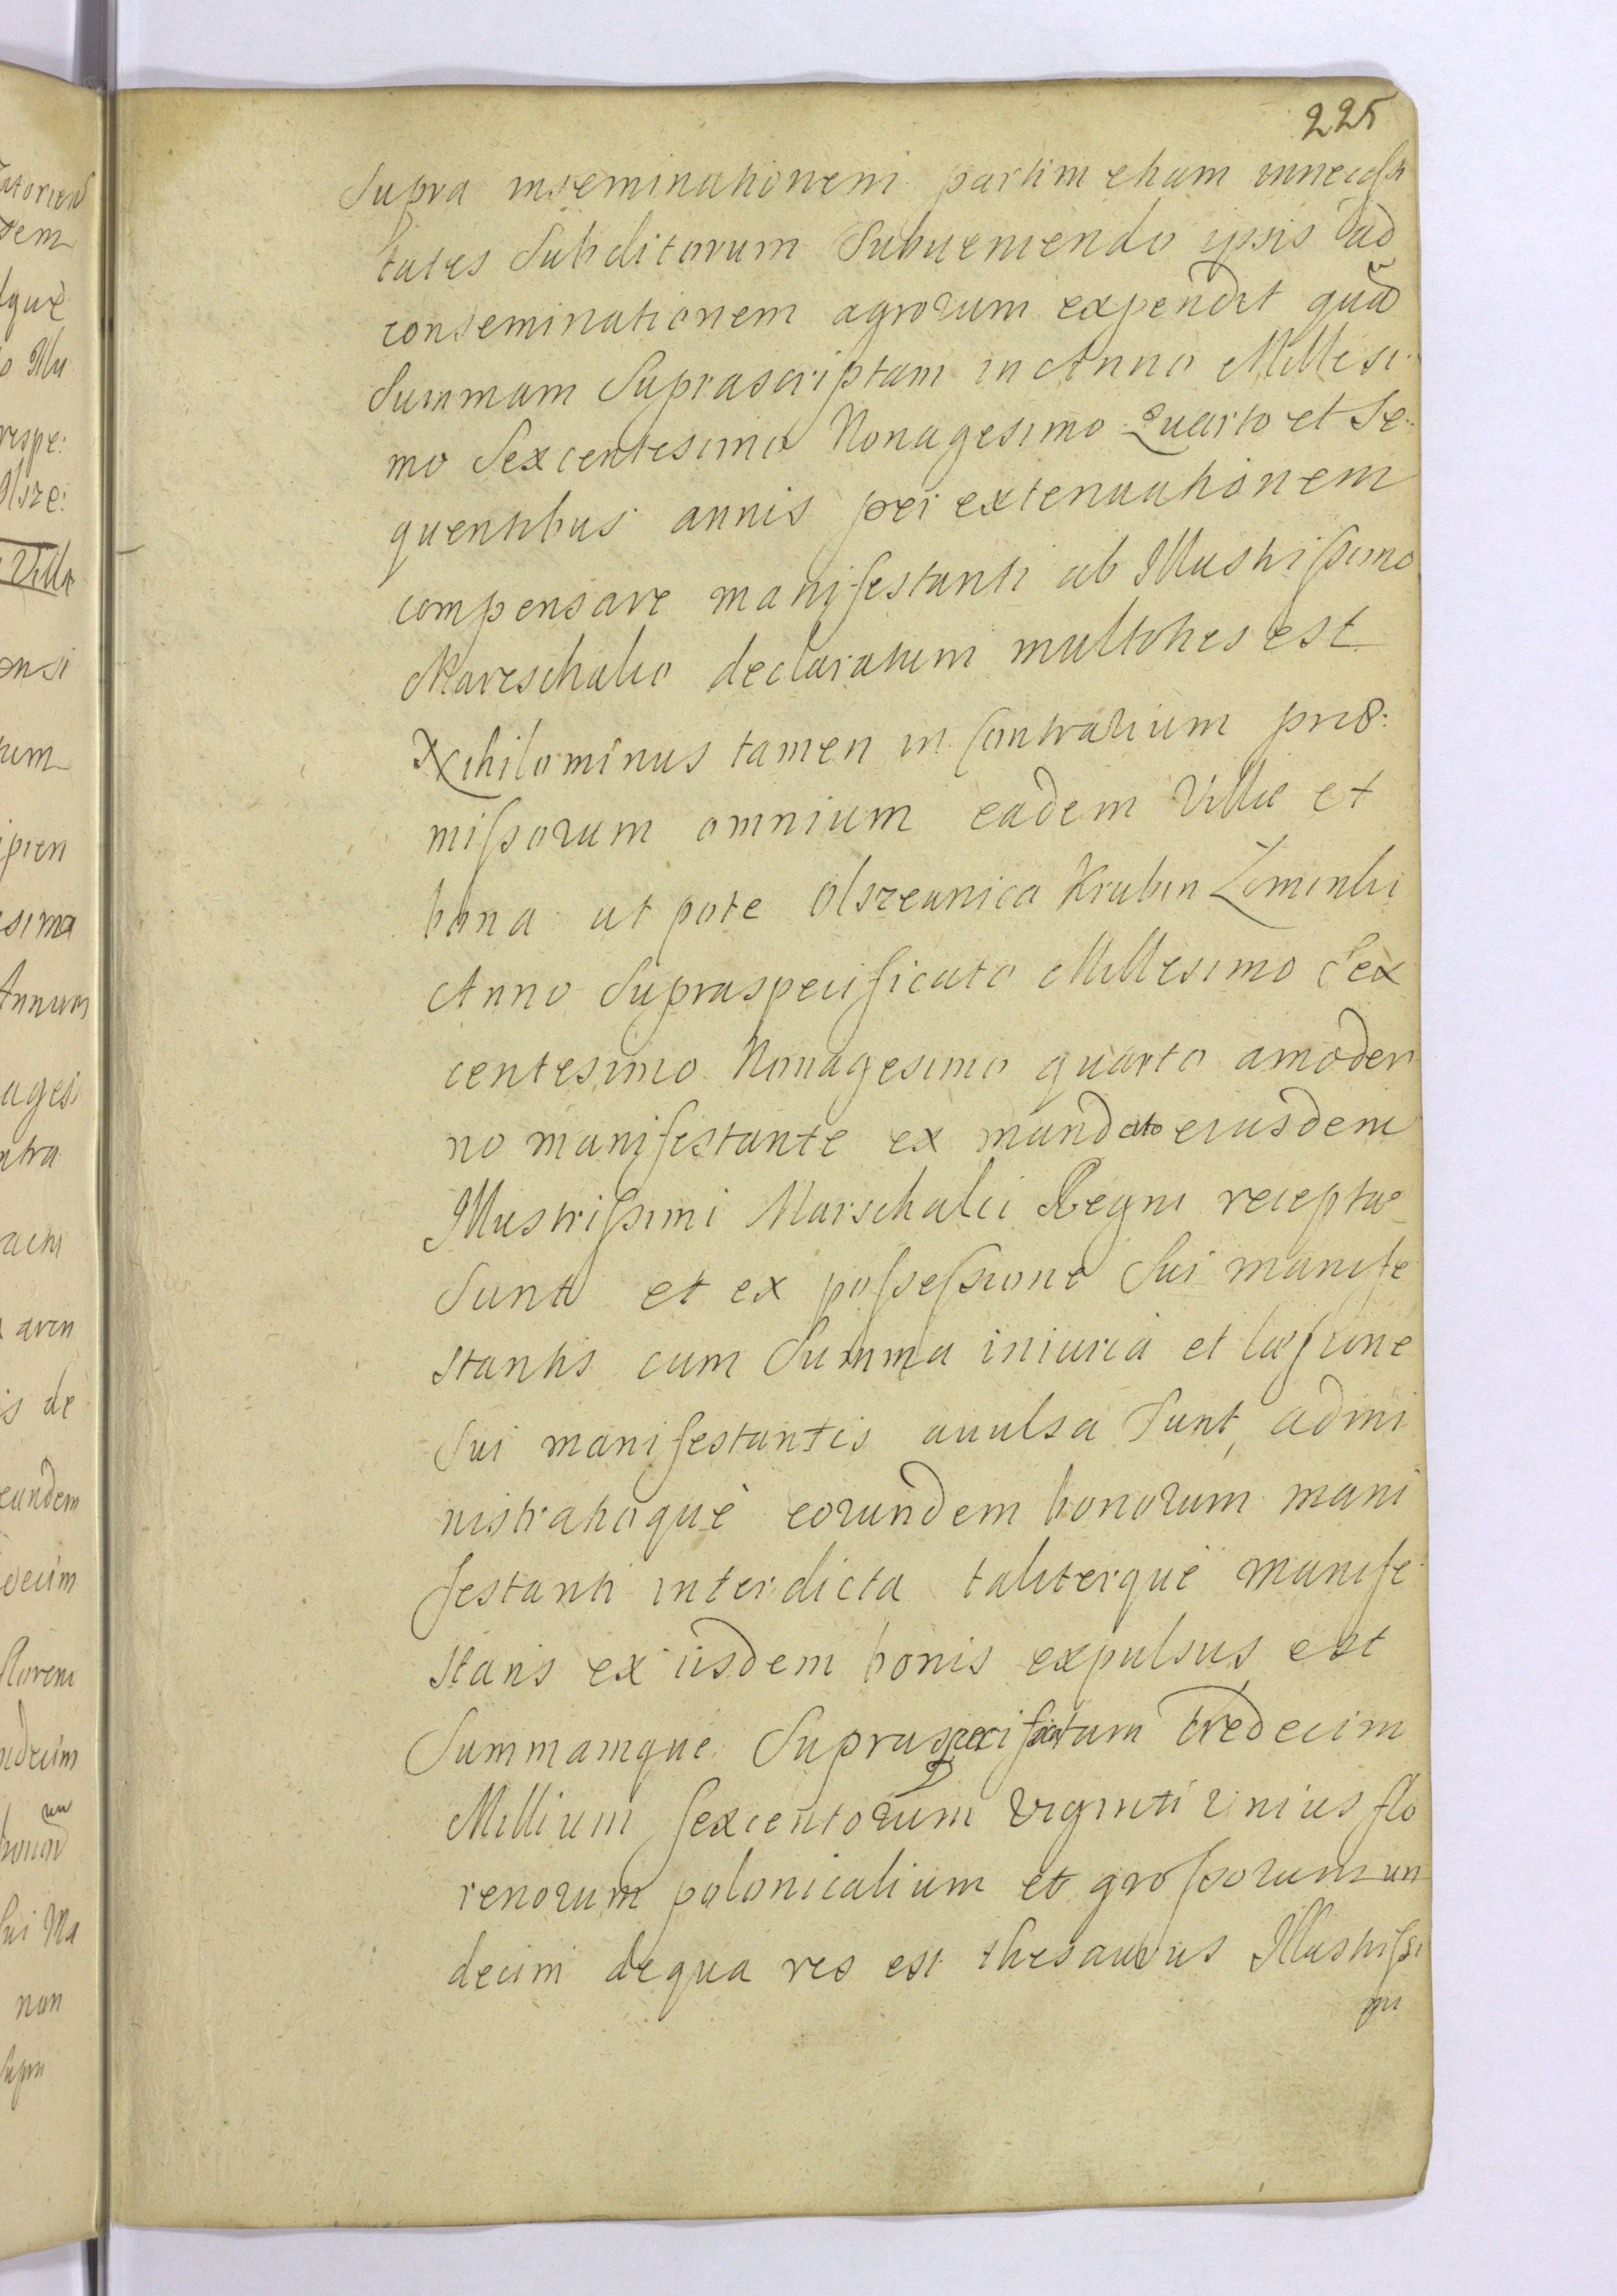 225
Supra inseminationem partim etiam in necessi
tates Subditorum Subueniendo ipsis ad
conseminationem agrorum expendit quã
Summam Suprascriptam in Anno Millesi
mo Sexcentesimo Nonagesimo Quarto et Se:
quentibus annis per extenuationem
compensare manifestanti ab Illustrissimo
Mareschalco declaratum multoties est
Nihilominus tamen in contrarium præ:
missorum omnium eadem Villæ et
bona ut pote Olszeunica Krubin Zimintki
Anno Supraspecificato Millesimo Sex
centesimo Nonagesimo quarto a moder
no manifestante ex mandato eiusdem
Illustrissimi Marschalci Regni receptæ
Sunt et ex possessione Sui manife
stantis cum Summa iniuria et læsione
Sui manifestantis auulsa Sunt, admi
nistratioquè eorundem bonorum mani
festanti interdicta taliterquè manife
stans ex iisdem bonis expulsus est
Summamque Supraspecificatam tredecim
Millium sexcentorum viginti unius flo
renorum polonicalium et grossorum un
decim de qua res est thesaurus Illustrissi
mi
atorien
dem
què
o Illu
respe:
Olsze:
Villa
onsi
tum
ipien
esima
Annum
agesi
ntra
acti
aren
is de
eundem
decim
floreni
ndecim
Sui Ma
non
Supra